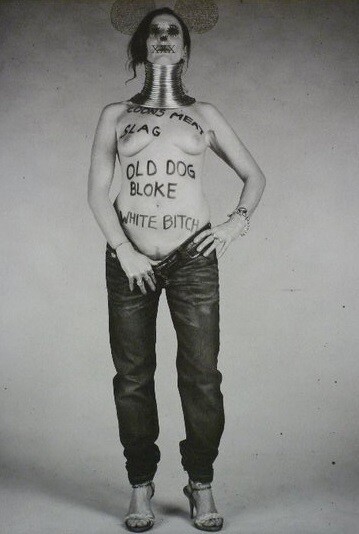 COONS MEAT
SLAG
OLD DOG
BLOKE
WHITE BITCH